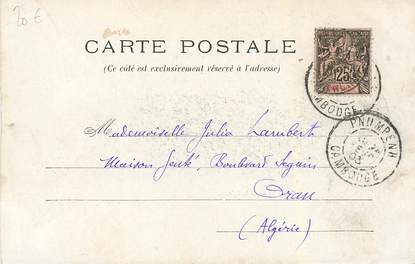 20 €
CARTE POSTALE
(Ce côté est exclusivement réservé à l'adresse)
25
Mademoiselle Julia Lambert
Maison Jenté, Boulevard Seguin
Oran
(Algérie)
PNUMPENH
CAMBODGE